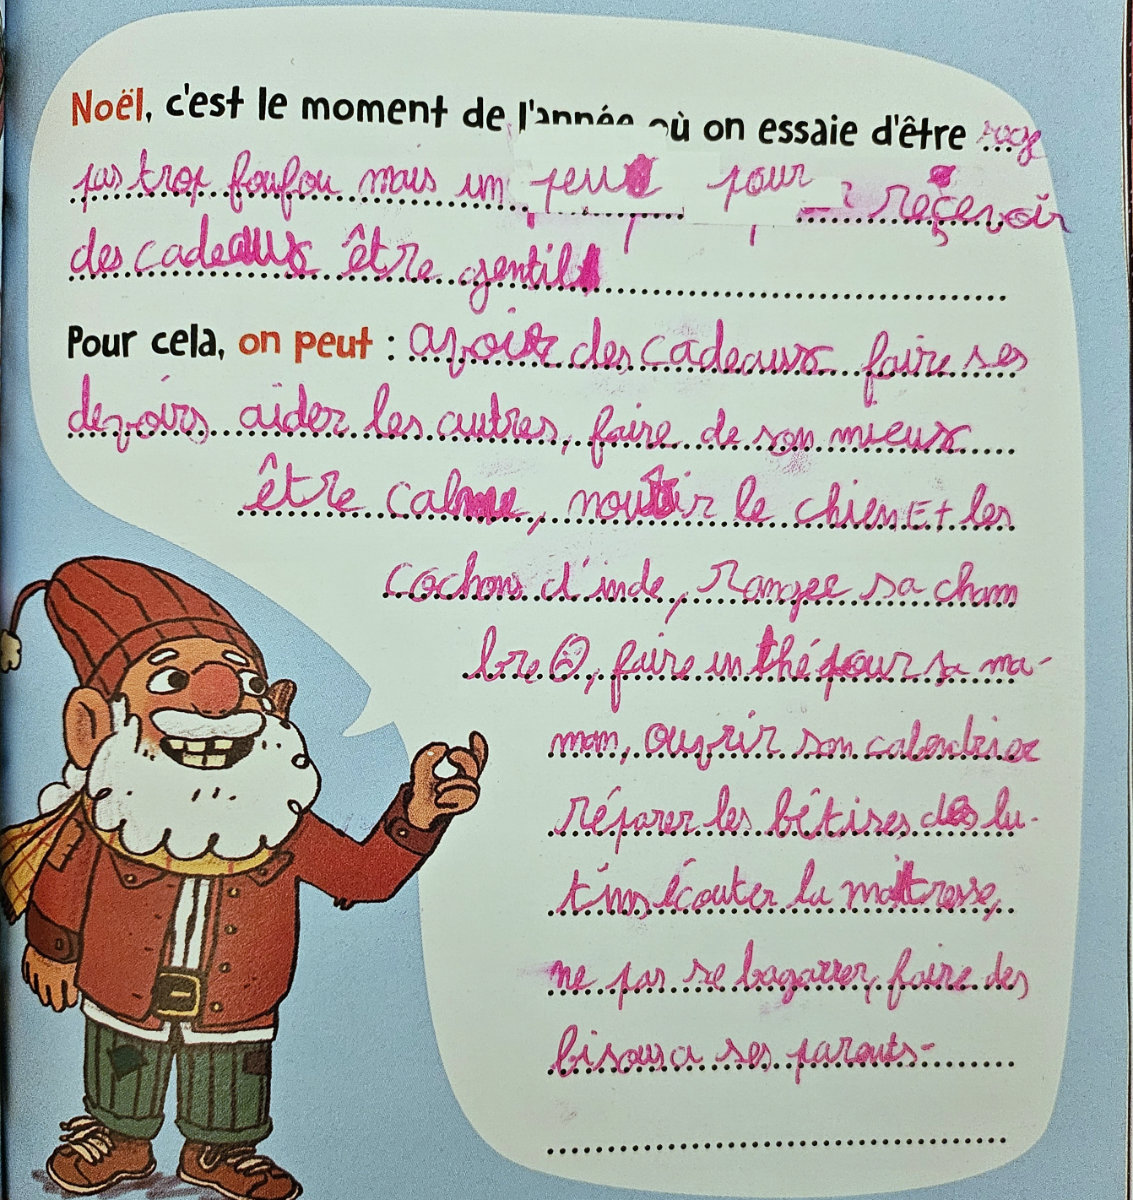 Noël, c'est le moment de l'année où on essaie d'être
pas trop foufou mais un peu pour reçevoir
des cadeaux être gentil
Pour cela, on peut : avoir des cadeaux faire ses
devoirs aider les autres, faire de son mieux
être calme, nourir le chien Et les
cochons d'inde, ranger sa cham
bre, faire un thé pour sa ma-
man, ouvrir son calendrier
réparer les bêtises des lu-
tins écouter la maîtresse,
ne pas se bagarrer, faire des
bisous a ses parents-